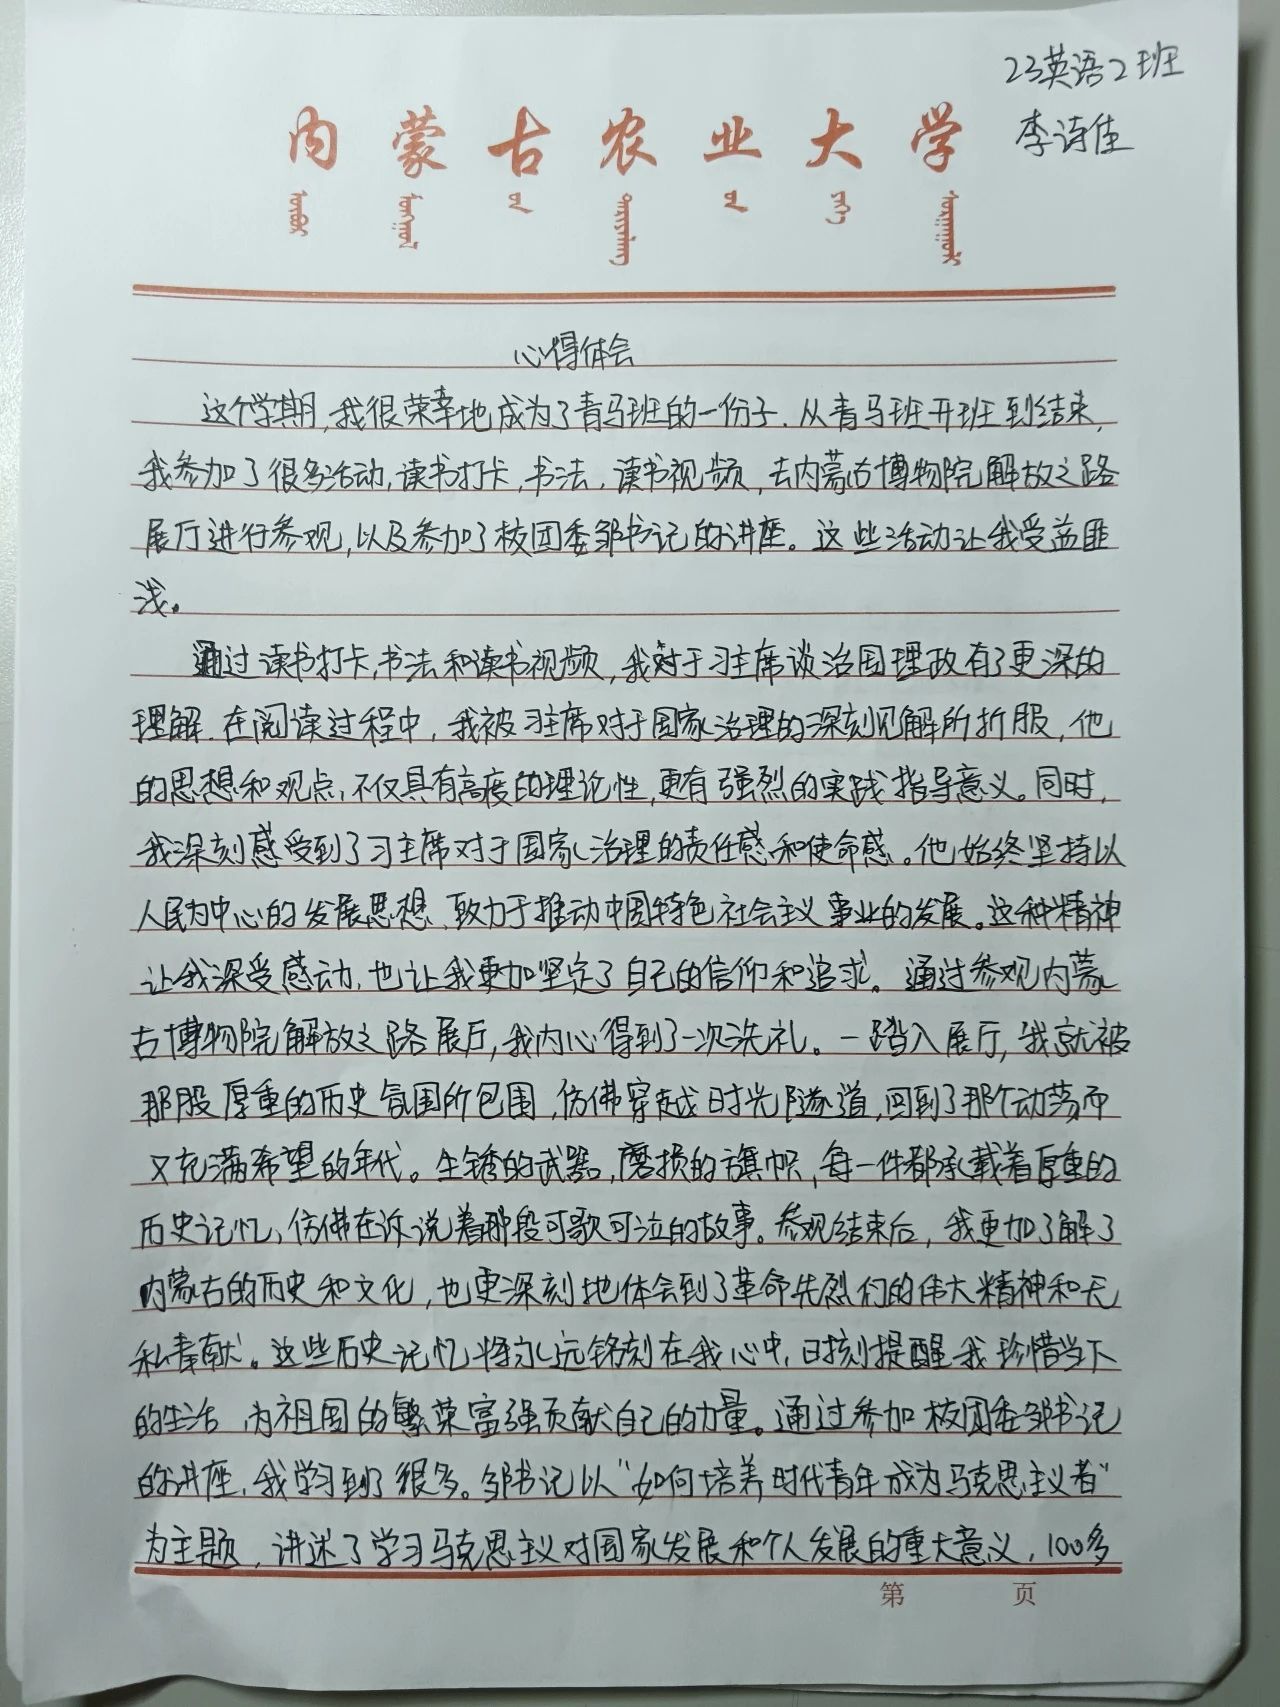 23英语2班
李诗佳
内蒙古农业大学
心得体会
这个学期,我很荣幸地成为了青马班的一份子.从青马班开班到结束,
我参加了很多活动,读书打卡,书法,读书视频,去内蒙古博物院解放之路
展厅进行参观,以及参加了校团委邹书记的讲座。这些活动让我受益匪
浅。
通过读书打卡,书法和读书视频,我对于习主席谈治国理政有了更深的
理解.在阅读过程中,我被习主席对于国家治理的深刻见解所折服,他
的思想和观点,不仅具有高度的理论性,更有强烈的实践指导意义。同时,
我深刻感受到了习主席对于国家治理的责任感和使命感。他始终坚持以
人民为中心的发展思想,致力于推动中国特色社会主义事业的发展。这种精神
让我深受感动,也让我更加坚定了自己的信仰和追求。通过参观内蒙
古博物院解放之路展厅,我内心得到了一次洗礼。一踏入展厅,我就被
那股厚重的历史氛围所包围,仿佛穿越时光隧道,回到了那个动荡而
又充满希望的年代。生锈的武器,磨损的旗帜,每一件都承载着厚重的
历史记忆,仿佛在诉说着那段可歌可泣的故事。参观结束后,我更加了解了
内蒙古的历史和文化,也更深刻地体会到了革命先烈们的伟大精神和无
私奉献。这些历史记忆将永远铭刻在我心中,时刻提醒我珍惜当下
的生活,为祖国的繁荣富强贡献自己的力量。通过参加校团委邹书记
的讲座,我学习到了很多。邹书记以“如何培养时代青年成为马克思主义者”
为主题,讲述了学习马克思主义对国家发展和个人发展的重大意义,100多
第 页